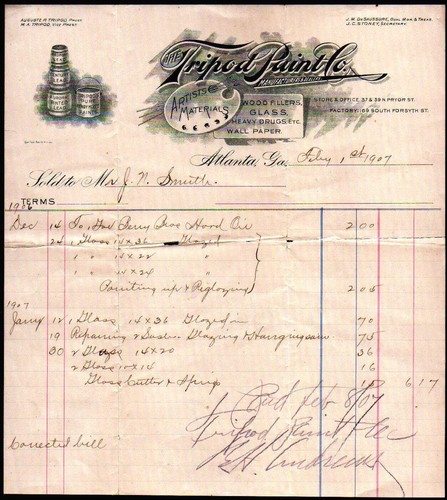 AUGUSTE M. TRIPOD, PREST.
M.A. TRIPOD, VICE PREST.
J.M. DESAUSSURE, GENL. MAN. & TREAS.
J.C. STONEY, SECRETARY.
THE Tripod Paint Co.
MANUFACTURERS OF
ARTISTS MATERIALS
WOOD FILLERS,
GLASS,
HEAVY DRUGS, ETC.
WALL PAPER.
STORE & OFFICE, 37 & 39 N. PRYOR ST.
FACTORY: 169 SOUTH FORSYTH ST.
Atlanta, Ga, Feby 1st 1907
Sold to Mr J. N. Smith
TERMS
1906
Dec 14 To, Perry Bros Hood Oil 2 00
24 1 Glass 14 x 36 Glazed
1 " 14 x 22 "
1 " 14 x 24
Pointing up & Reglazing 2 05
1907
Jany 12 1 Glass 14 x 36 Glazed in 70
19 Repairing 2 Sashes Glazing & Hanging 75
30 2 Glass 14 x 20 36
2 Glass 10 x 14 16
Glass Cutter & Sprigs 15 6 17
Paid Feb 8/07
Tripod Paint Co
Corrected bill